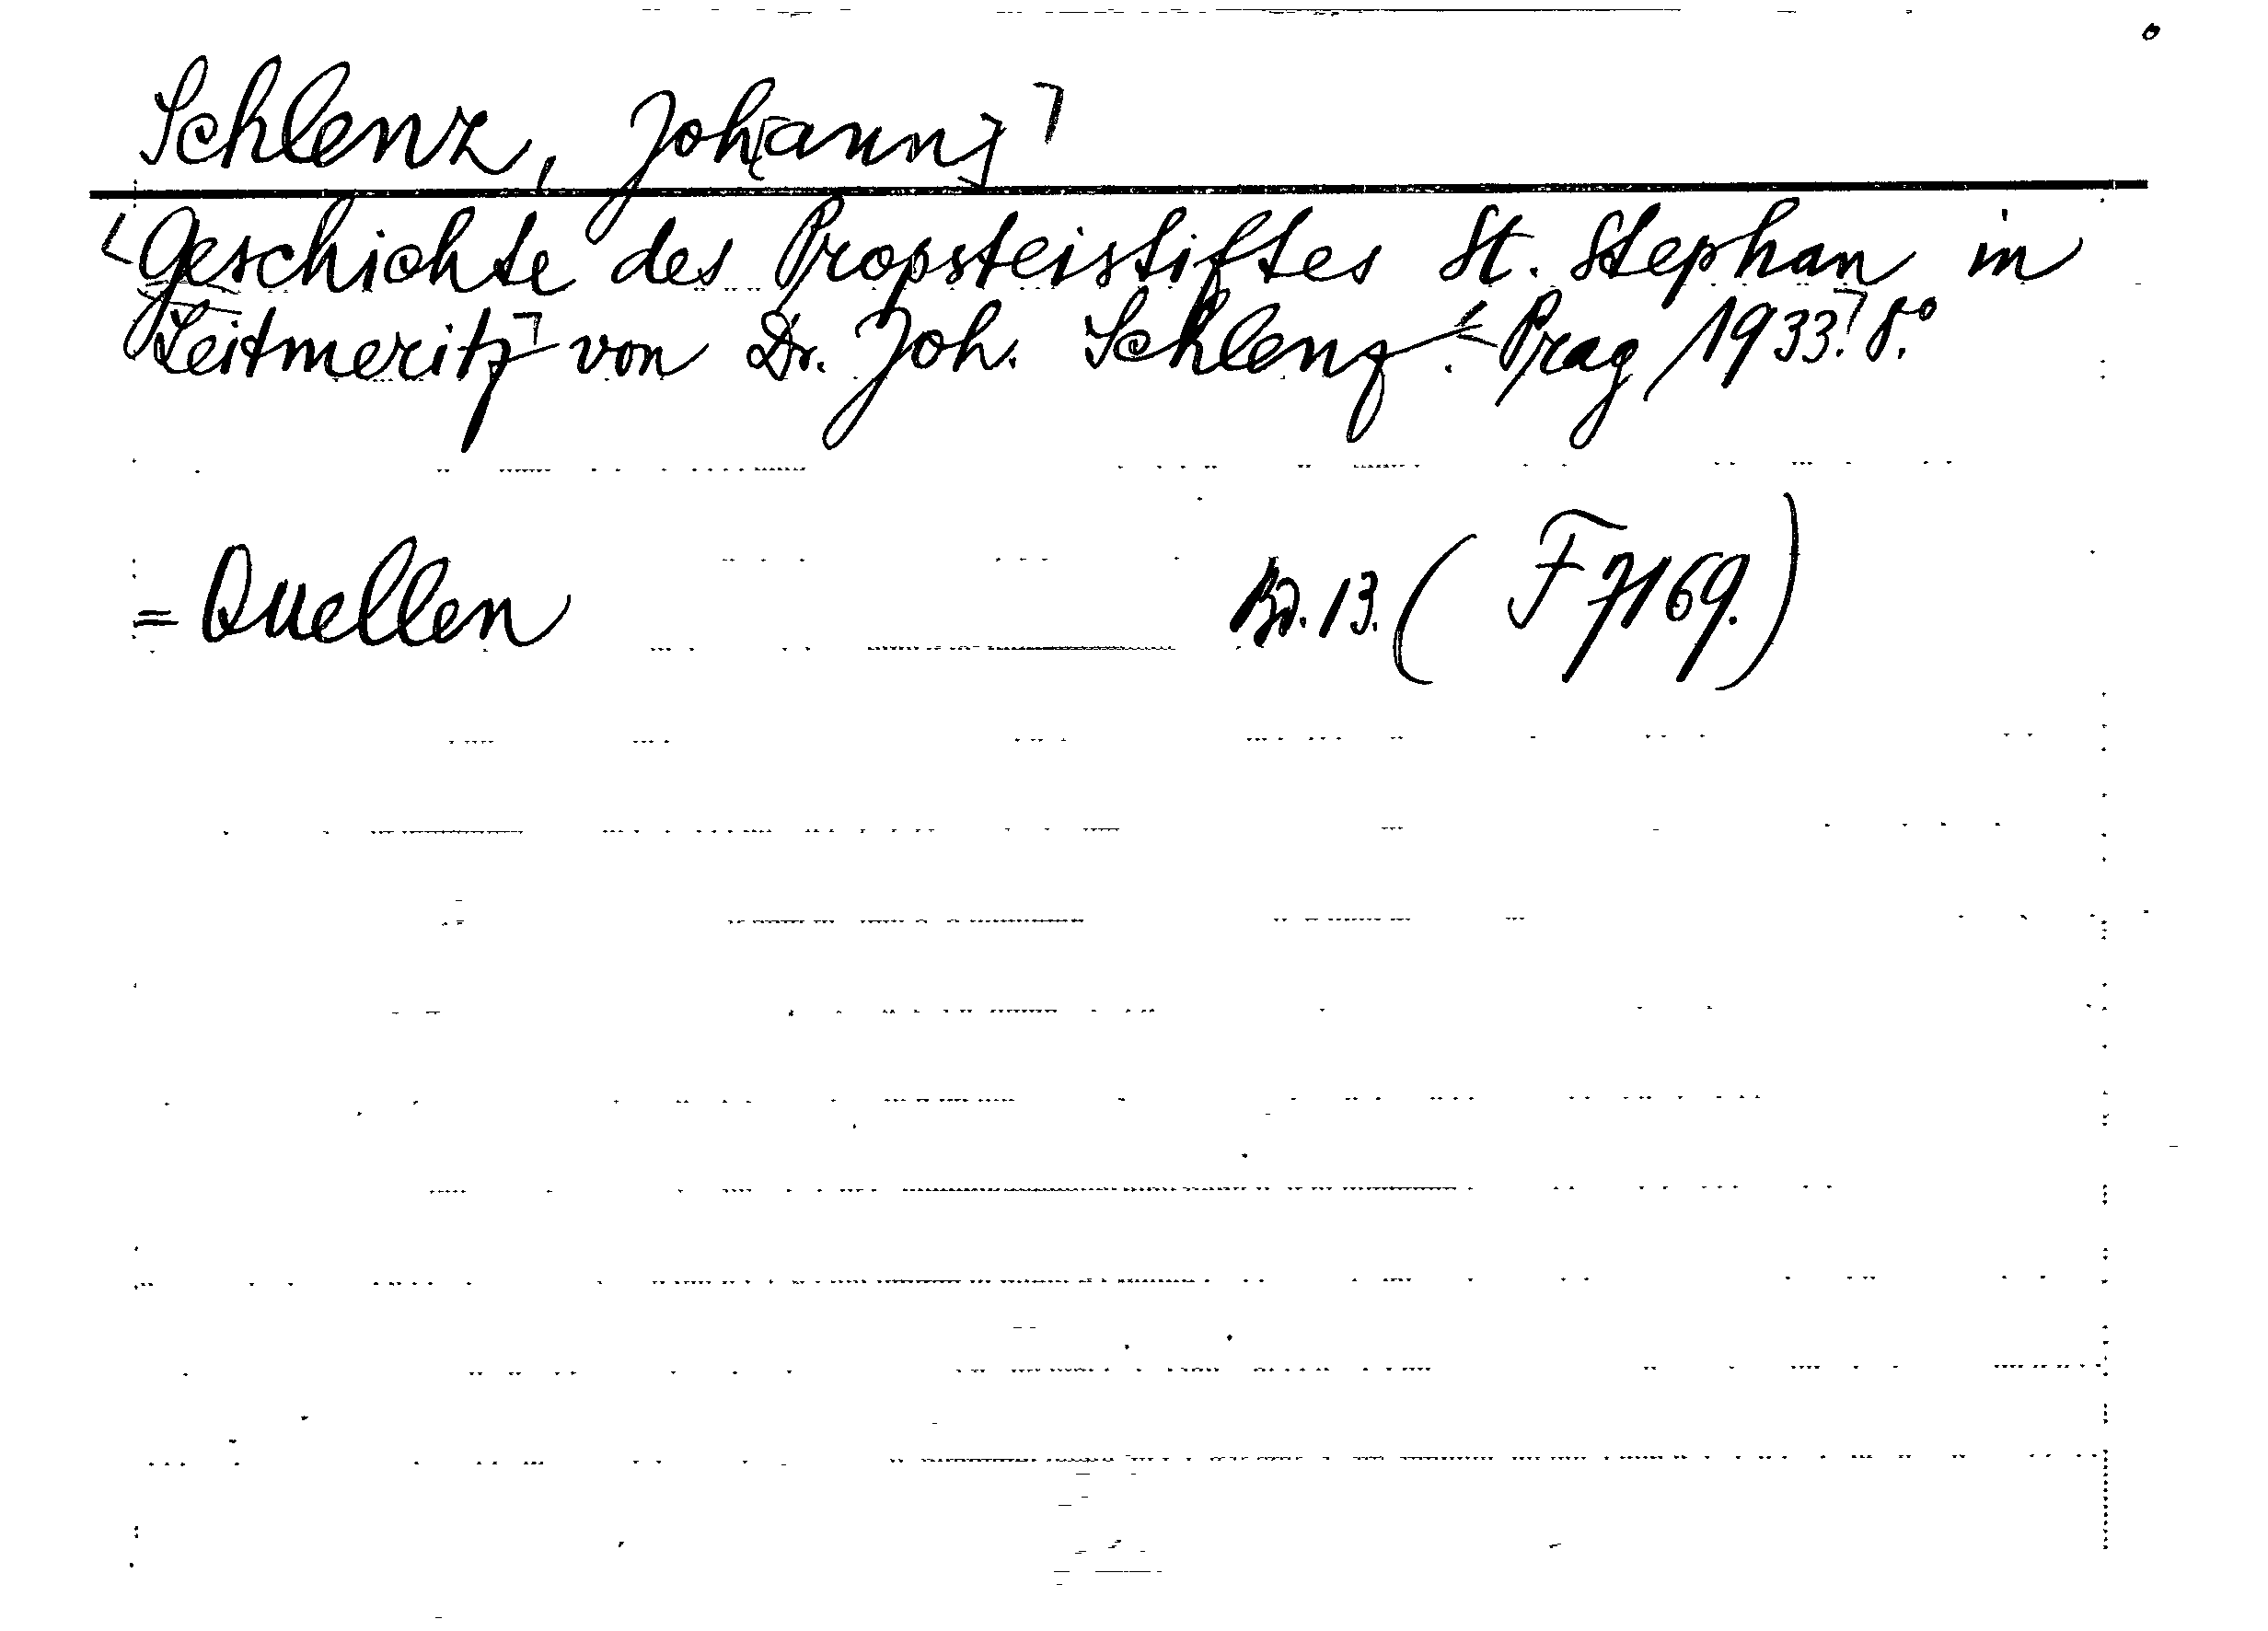 Schlenz, Joh[ann]
Geschichte des Propsteistiftes St. Stephan in
Leitmeritz von Dr. Joh. Schlenz. Prag 1933. 8.°
= Quellen Bd. 13. (F 7169.)